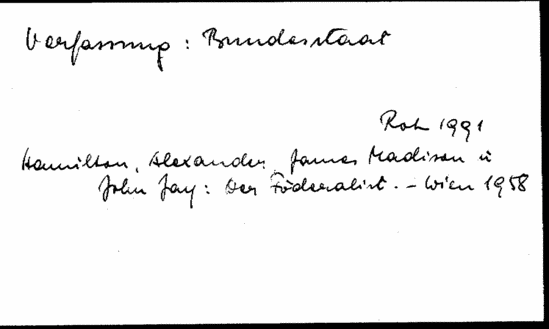 Verfassung : Bundesstaat
Rob 1991
Hamilton, Alexander, James Madison u
John Jay: Der Föderalist. - Wien 1958